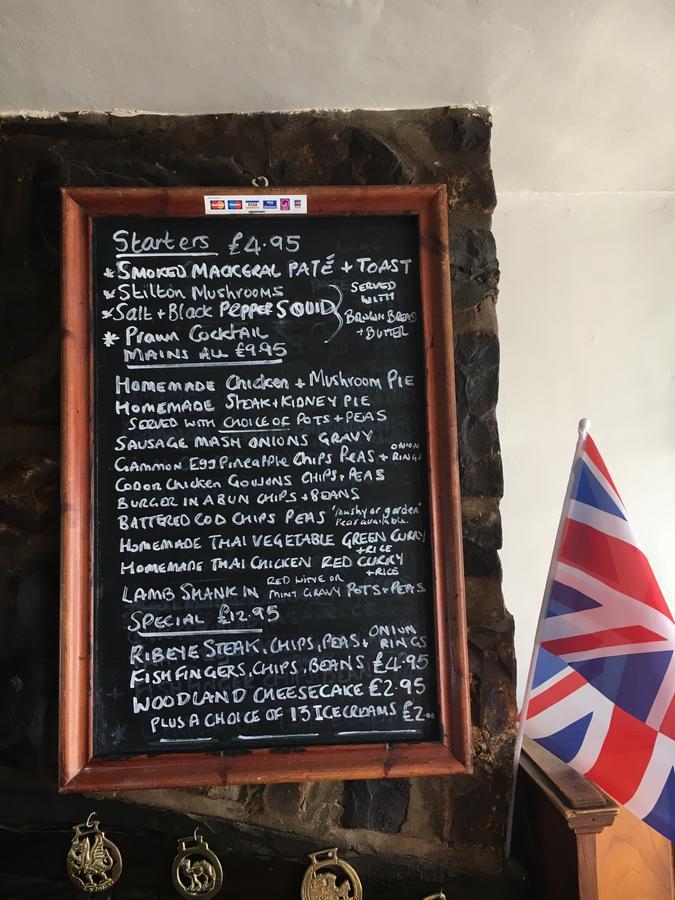 Starters £4.95
* SMOKED MACKGRAL PATÉ + TOAST
* Stilton Mushrooms
* Salt + Black PEPPER SQUID
* Prawn Cocktail
SERVED
WITH
BROWN BREAD
+ BUTTER
MAINS ALL £9.95
HOMEMADE Chicken + Mushroom PIE
HOMEMADE STEAK + KIDNEY PIE
SERVED WITH CHOICE OF POTS + PEAS
SAUSAGE MASH ONIONS GRAVY
Gammon Egg Pineapple Chips Peas + ONION RINGS
Chicken GOUJONS CHIPS + PEAS
BURGER IN A BUN CHIPS + BEANS
BATTERED COD CHIPS PEAS "mushy or garden"
Peas available.
HOMEMADE THAI VEGETABLE GREEN CURRY
+ RICE
HOMEMADE THAI CHICKEN RED CURRY
+ RICE
LAMB SHANK IN RED WINE OR MINT GRAVY POTS + PEAS
SPECIAL £12.95
RIBEYE STEAK, CHIPS, PEAS + ONION RINGS
FISHFINGERS, CHIPS, BEANS £4.95
WOODLAND CHEESECAKE £2.95
PLUS A CHOICE OF 13 ICECREAMS £2.00